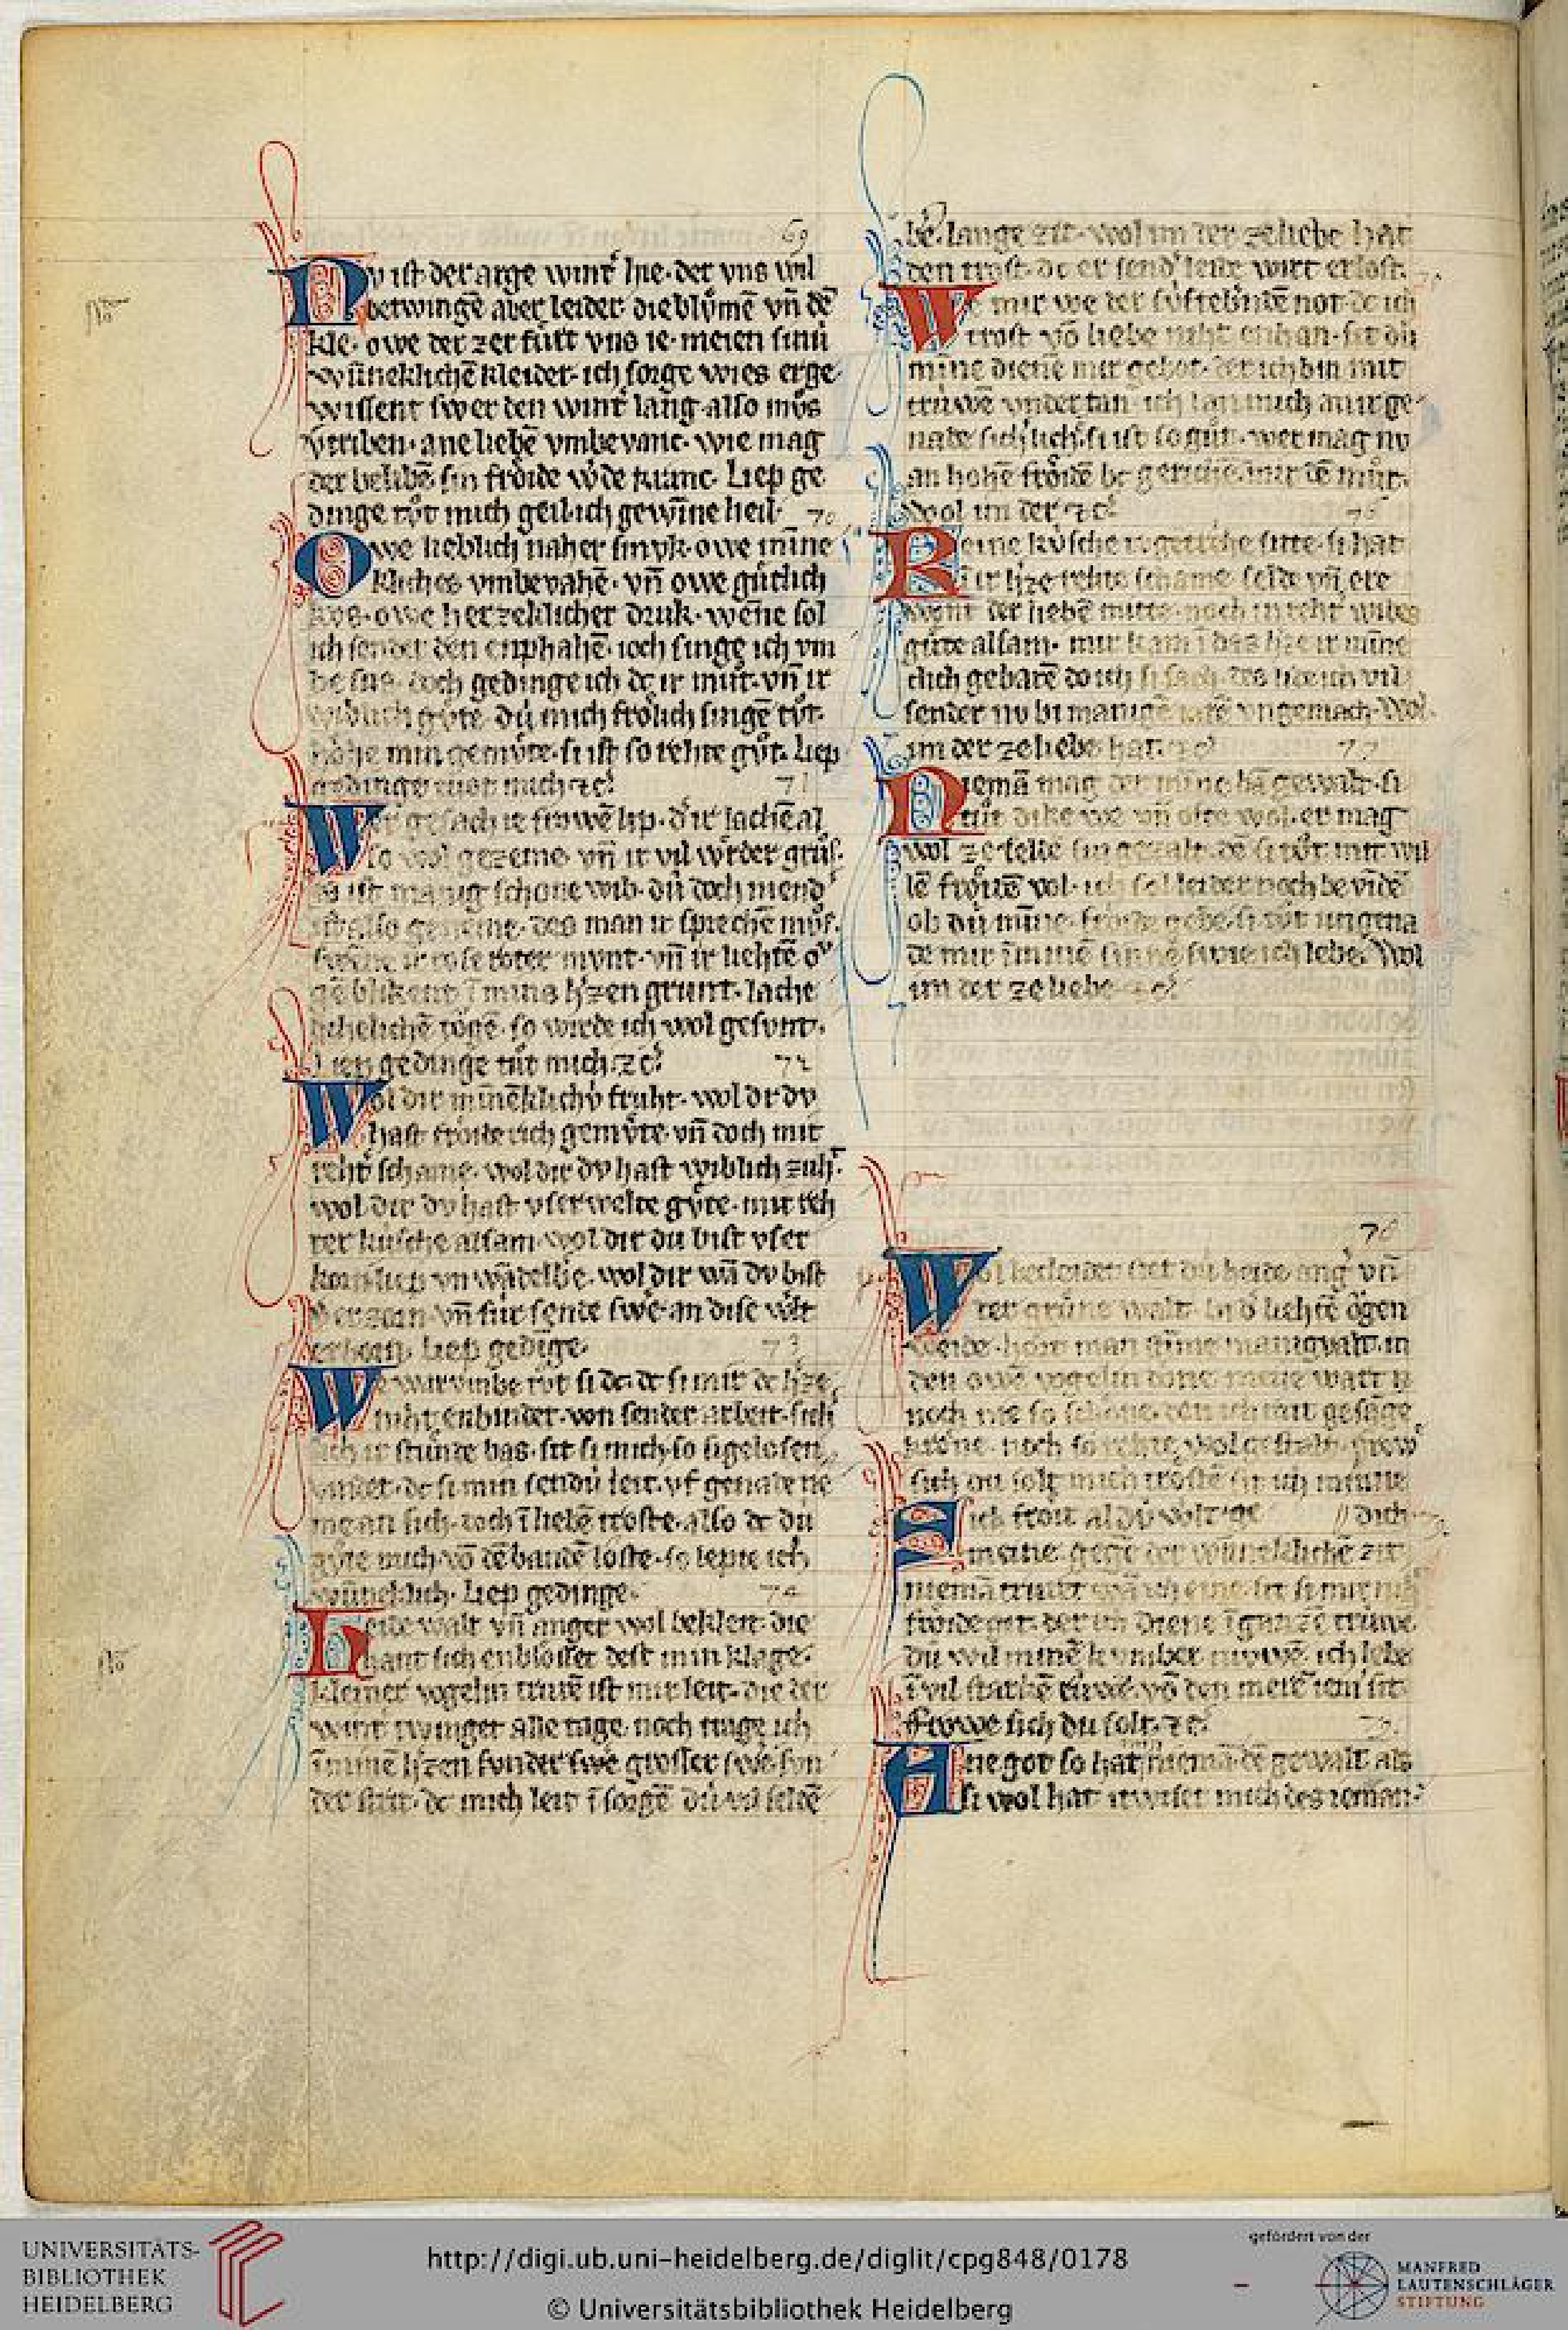 69
Nv ist der arge wint͛ hie · der vns wil
betwingē aber leider · die blůmē vn̄ dē
kle · owe der zerfůrt vns ie · meien sinů
wūneklichē kleider · ich sorge wies erge ·
wissent swer den wint͛ lang · also můs
v͛triben · ane liebē vmbevanc · wie mag
der belibē sin frỏide w͛de kranc · Liep ge
dinge tůt mich geil · ich gewīne heil · 70
Owe lieblich naher smvk · owe mīne
kliches vmbevahē · vn̄ owe gůtlich
kvs · owe herzeklicher druk · wēne sol
ich sender den enphahē · ioch singe ich vm
be sus · doch gedinge ich dc ir můt · vn̄ ir
wiblich gůte · dů mich frỏlich singē tůt ·
hỏhe min gemůte · si ist so rehte gůt · Liep
gedinge tuot mich ⁊c͛ 71
Wer gesach ie frowē lip · d͛ ir lachē al
so wol gezeme · vn̄ ir vil w͛der grůs ·
es ist manig schỏne wib · dů doch niend͛t
ist also geneme · des man ir sprechē můs ·
swēne ir rose roter mvnt · vn̄ ir liehtē oͮ
gē blikent ī mins h͛zen grunt · lache
lihelichē tỏgē · so wirde ich wol gesvnt ·
Liep gedinge tůt mich ⁊c͛ 72
Wol dir mīnēklichv͛ fruht · wol dir dv
hast frỏide rich gemůte · vn̄ doch mit
reht͛ schame · wol dir dv hast wiblich zuht ·
wol dir dv hast vserwelte gůte · mit reh
ter kůsche alsam · wol dir du bist vser
korn · liep vn wādelbe · wol dir wā dv bist
v͛ zorn · vn̄ fůr sende swe͛ · an dise w͛lt
erborn · Liep gedīge · 73
We warvmbe tůt si dc · dc si mir dc h͛ze
niht enbindet · von sender arbeit · sich
sich ir stůnde bas · sit si mich so sigelosen
vindet · dc si min sendů leit · vf genade ne
me an sich · doch ī liebē troste · also dc dů
gůte mich · vō dē bandē loste · so lepte ich
wūneklich · Liep gedinge · 74
Heide walt vn̄ anger wol bekleit · die
hant sich enblỏsset dest min klage ·
kleiner vogelin trurē ist mir leit · die der
wint͛ twinget alle tage · noch trage ich
ī minē h͛zen svnder swe͛ grosser swe͛ svn
der strit · dc mich leit ī sorgē dů vil selde
be · lange zit · wol im der ze liebe hat
den trost · dc er send͛ leide wirt erlost ·
We mir we der sůftebůndē not · dc ich
trost vō liebe niht enhan · sit dů
mīne dienē mir gebot · der ich bin mit
trůwē vndertan · ich lan mich an ir ge
nade sich͛lich · si ist so gůt · wer mag nv
an hohē frỏidē bc gerichē mir dē můt ·
Wol im der ⁊c͛
Reine kůsche tvgentliche sitte · si hat
ir h͛ze rehte schame · selde vn̄ ere
wont der liebē mitte · noch in reht͛ wibes
gůte alsam · mir kam ī das h͛ze ir mīne
clich gebarē do ich si sach · des lide ich vil
sender nv bi manigē iarē vngemach · Wol
im der ze liebe hat ⁊c͛ 77
Niemā mag der mīne hā gewalt · si
tůt dike we vn̄ ofte wol · er mag
wol ze selde sin gezalt · dē si tůt mit wil
lē frỏidē vol · ich sol leider noch bevīdē
ob dů mīne · frỏide gebe · si tůt ungena
de mir ī minē sinnē swie ich lebe · Wol
im der ze liebe ⁊c͛
78
Wol bekleidet stet dů heide ang͛ vn̄
der grůne walt · in d͛ liehtē ỏgen
weide · hỏrt man stīme manigvalt · in
den owē vogelin dỏne
noch nie so schỏne
krỏne · noch so rehte wol gestalt · frow͛
sich du solt mich trỏstē sit ich mīne
Sich frỏit al dů w͛lt ge // dich ·
meine gegē der wūneklichē zit
niemā truret wā ich eine · sit si mir niht
frỏide git · der ich diene ī ganze trůwe
dů wil minē kvmber nůwē · ich lebe
ī vil starkē růwē · vō den mere͛ iem͛ sit
Frowe sich du solt · ⁊c͛ 79.
Ane got so hat niemā dē gewalt als
si wol hat · it wiset mich des ieman ·
UNIVERSITÄTS-
BIBLIOTHEK
HEIDELBERG
http://digi.ub.uni-heidelberg.de/diglit/cpg848/0178
© Universitätsbibliothek Heidelberg
gefördert von der
MANFRED
LAUTENSCHLÄGER
STIFTUNG